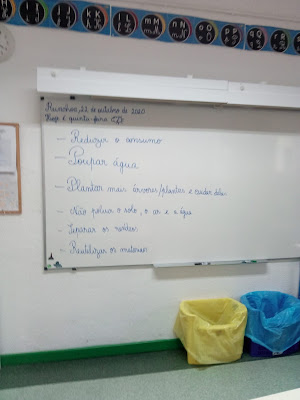 Ii Jj Kk Ll Mm Nn Oo Pp Qq
Runchos, 22 de outubro de 2020
Hoje é quinta-feira
- Reduzir o consumo
- Poupar água
- Plantar mais árvores/plantas e cuidar delas
- Não poluir o solo, o ar e a água
- Separar os resíduos
- Reutilizar os materiais